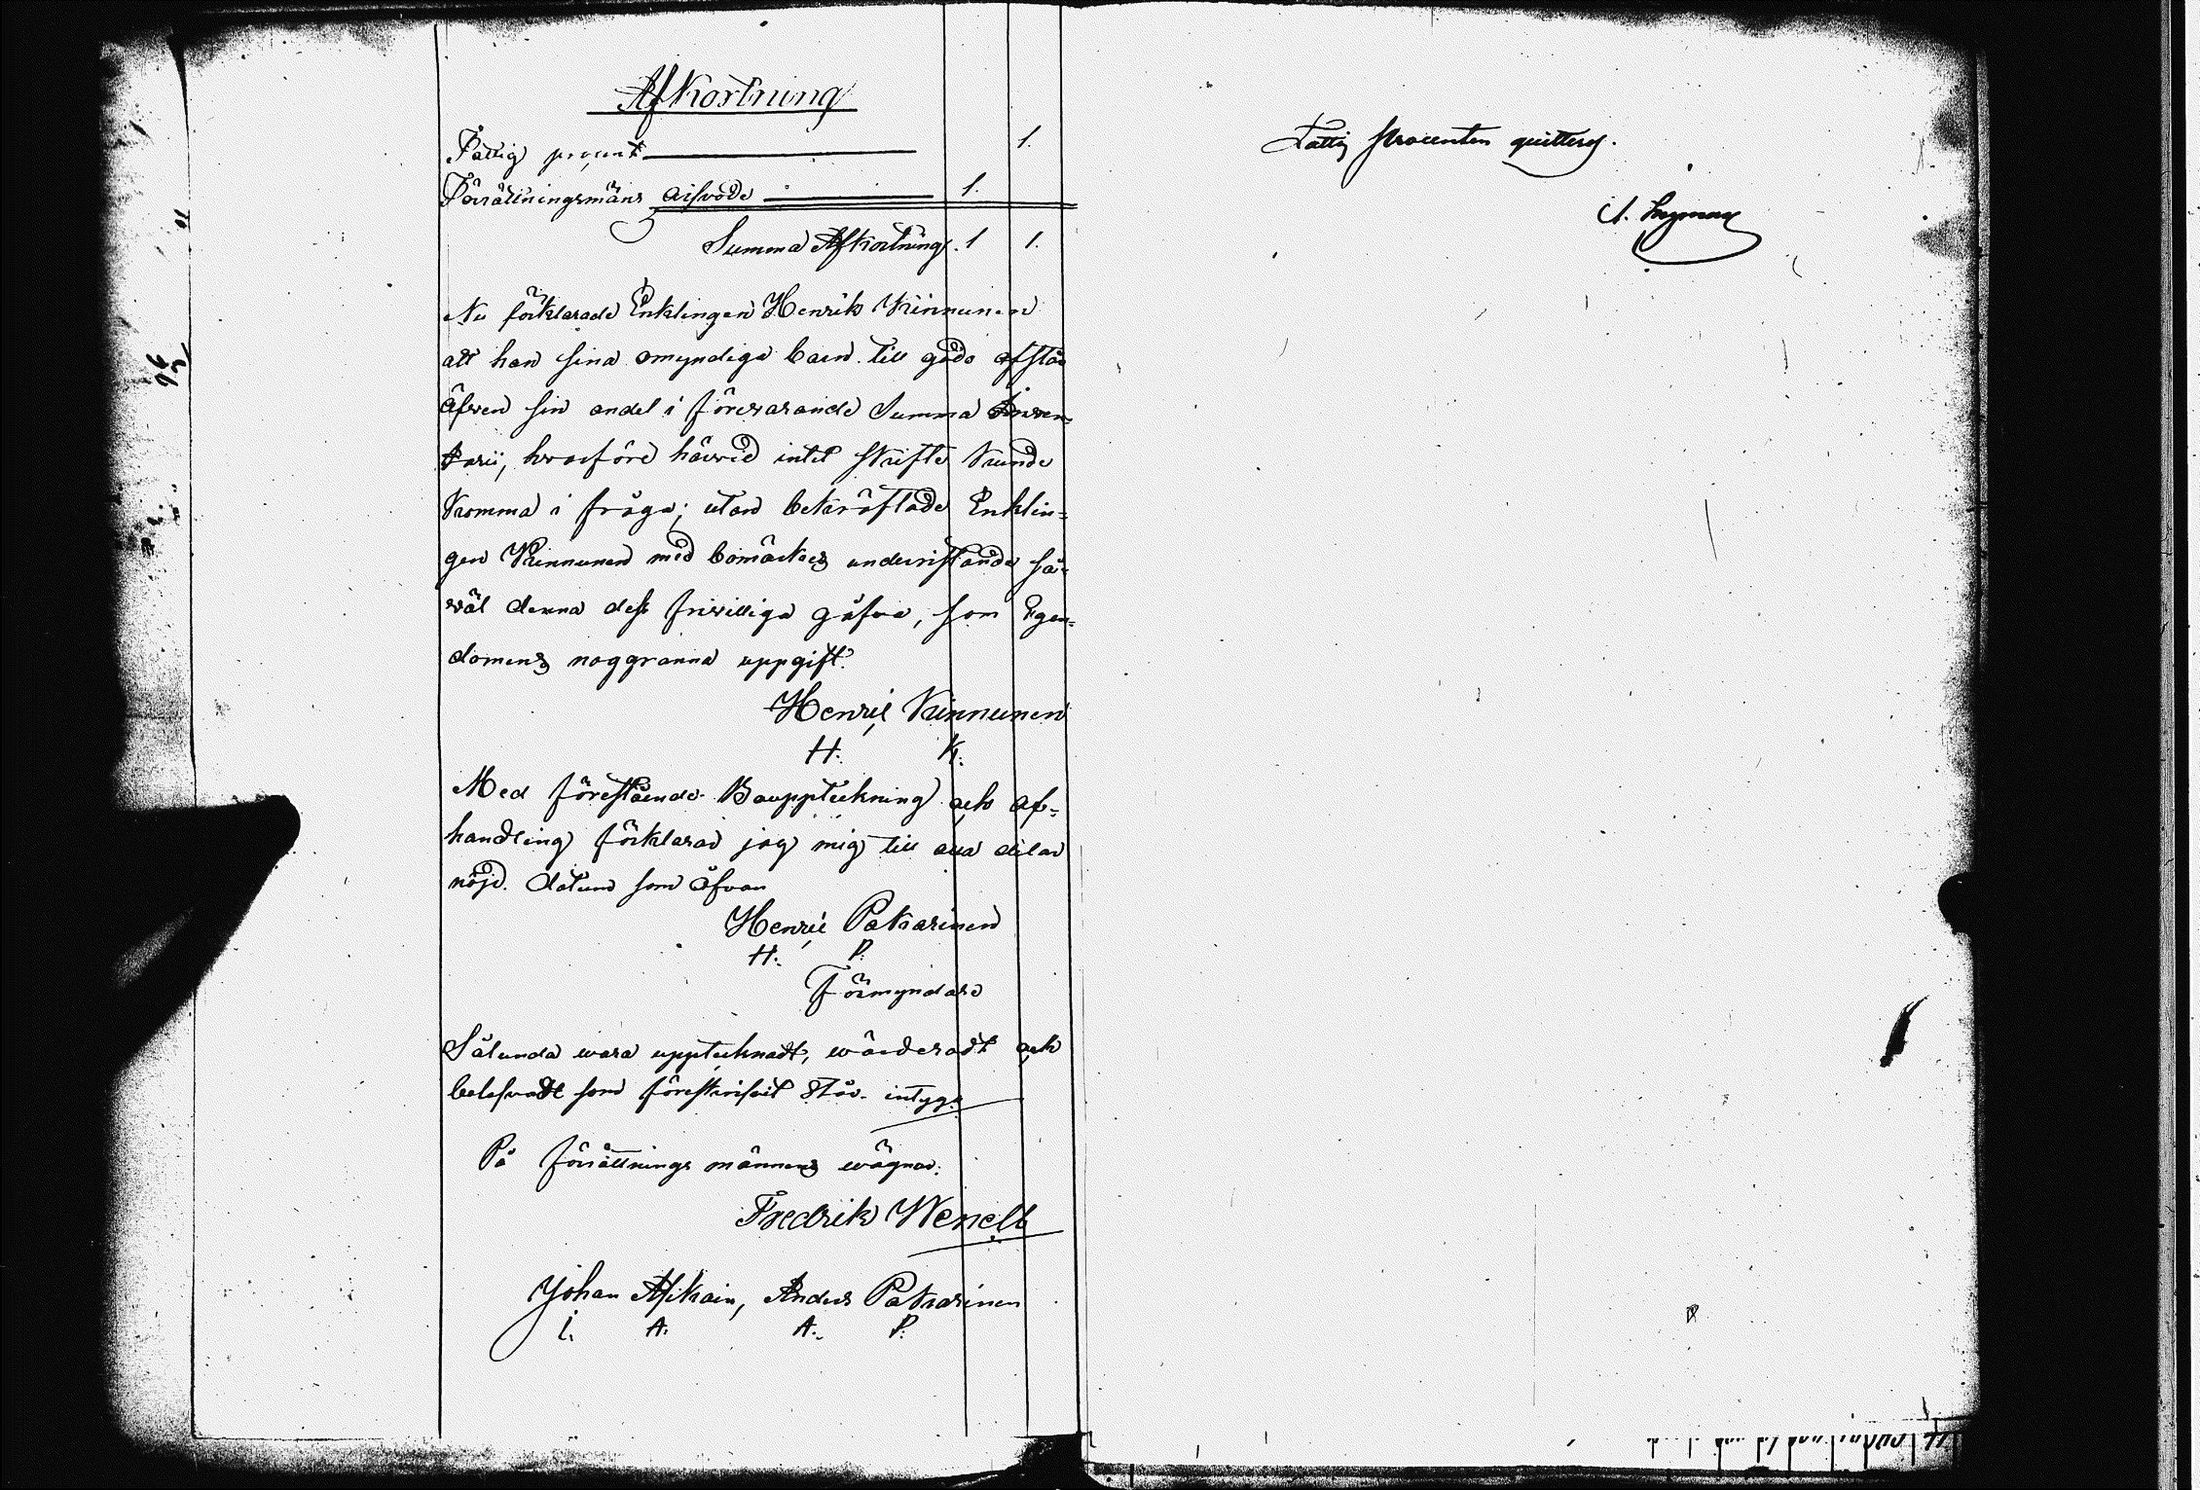 Afkortning
Fattig procent 1.
Förrättningsmäns arfvode 1.
Summa Afkortning. 1 1.
Nu förklarade Enklingen Henrik Kinnunen
att han sina omyndiga barn till godo afstår
äfven sin andel i förevarande Summa Inven-
tarii, hvarföre härvid intet skifte kunde
komma i fråga; utan bekräftade Enklin-
gen Kinnunen med bomärkes undersittande så-
väl denna dess frivilliga gåfva, som Egen-
domens noggranna uppgift.
Henric Kinnunen
H. K.
Med förestående Bouppteckning och af-
handling förklarar jag mig till alla delar
nöjd. datum som åfvan
Henric Pakarinen
H. P.
Förmyndare
Sålunda vara upptecknadt, wärderadt och
som förestår intyga
På förrättnings männens wägnar:
Fredrik Wenell
Johan Asikain, Anders Pakarinen
I. A. A. P.
Fattig procenten quitteras.